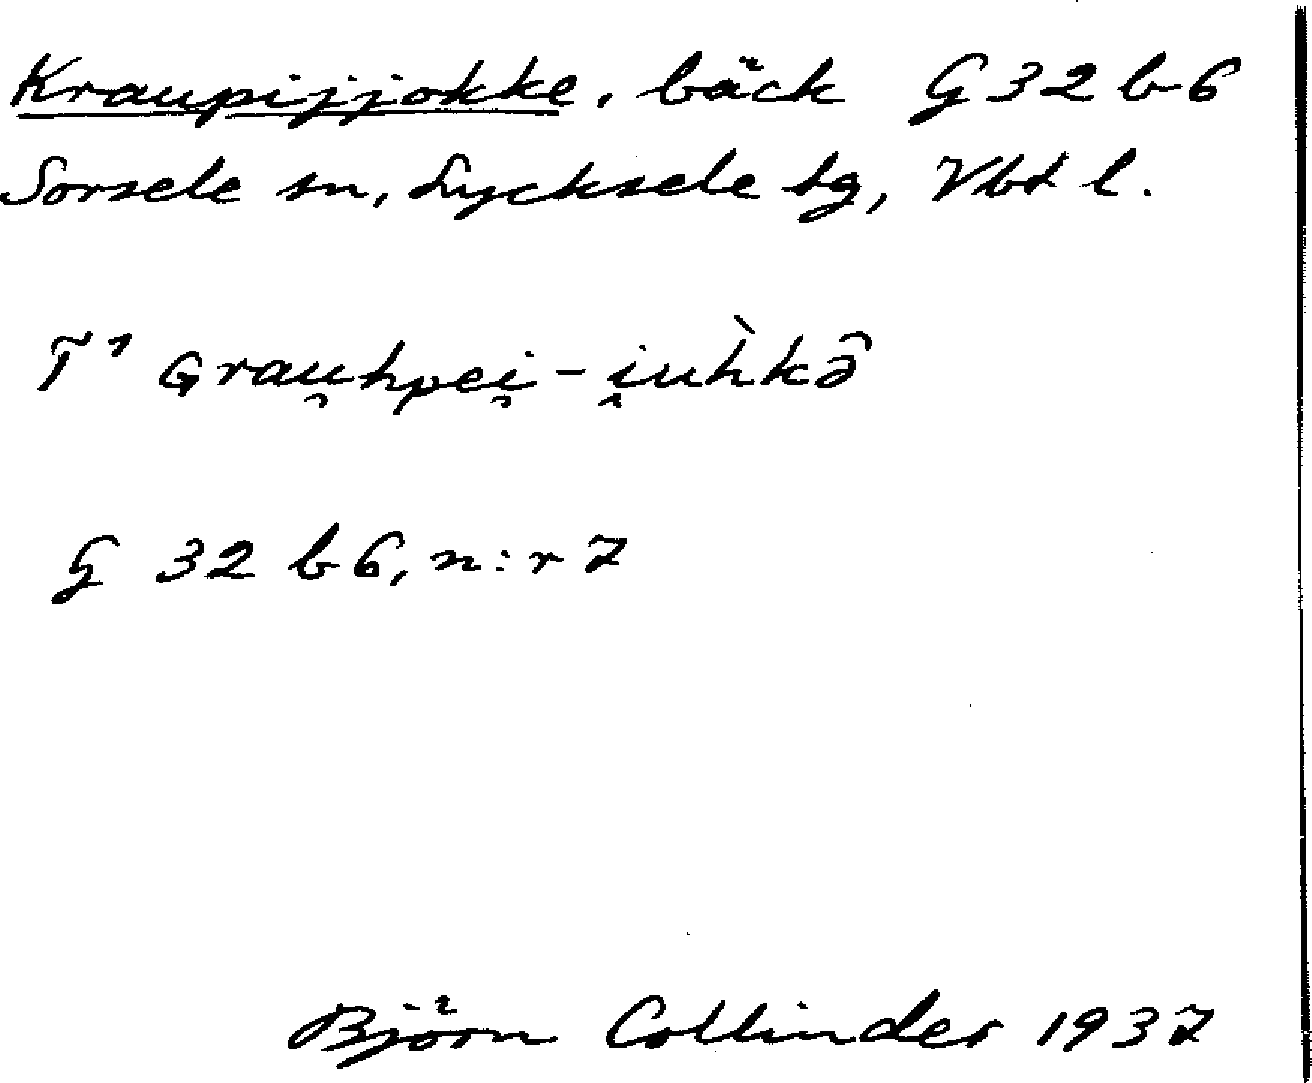 Kraupijjokke, bäck G 32 b 6
Sorsele sn, Lycksele tg, Vbt l.
T¹ Grau̯hpei̯-i̯uh̀kə̑
G 32 b 6, n:r 7
Björn Collinder 1937